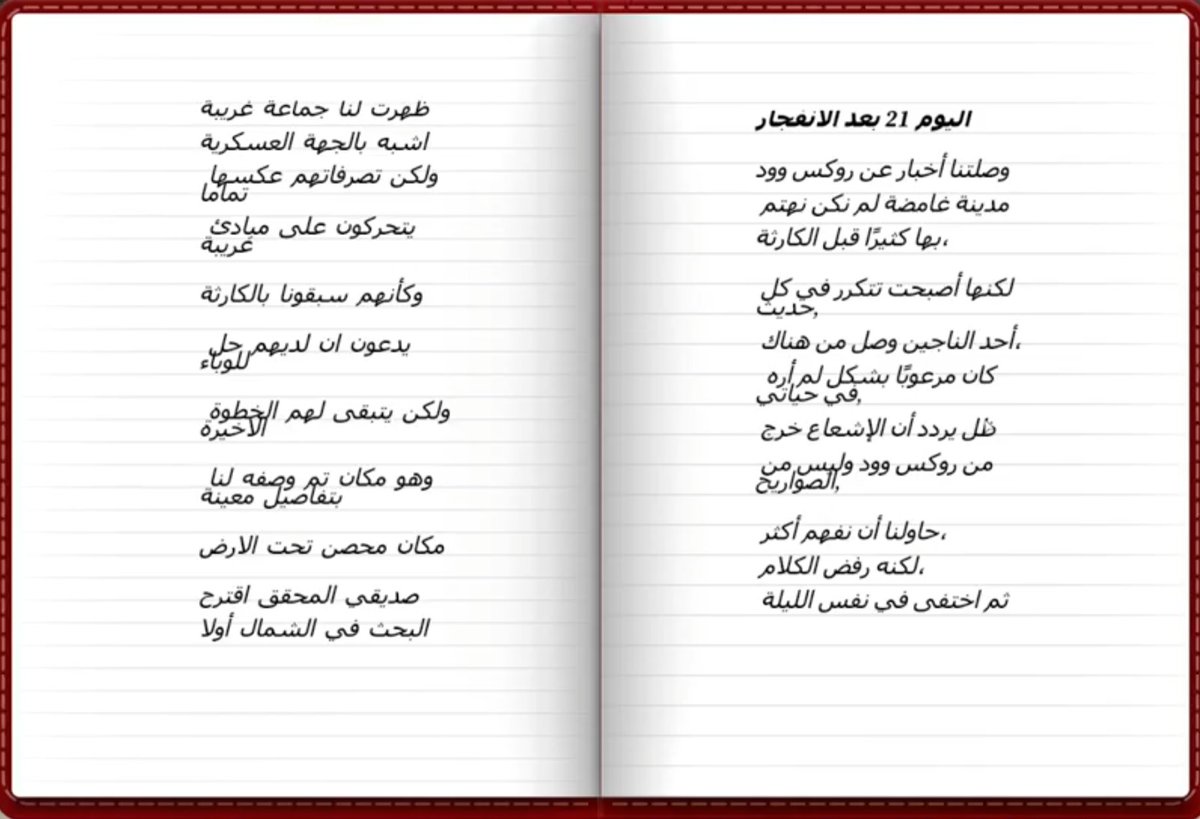 اليوم 21 بعد الانفجار
وصلتنا أخبار عن روكس وود
مدينة غامضة لم نكن نهتم
بها كثيرًا قبل الكارثة،
لكنها أصبحت تتكرر في كل
حديث,
أحد الناجين وصل من هناك،
كان مرعوبًا بشكل لم أره
في حياتي,
ظل يردد أن الإشعاع خرج
من روكس وود وليس من
الصواريخ,
حاولنا أن نفهم أكثر،
لكنه رفض الكلام،
ثم اختفى في نفس الليلة
ظهرت لنا جماعة غريبة
اشبه بالجهة العسكرية
ولكن تصرفاتهم عكسها
تماما
يتحركون على مبادئ
غريبة
وكأنهم سبقونا بالكارثة
يدعون ان لديهم حل
للوباء
ولكن يتبقى لهم الخطوة
الاخيرة
وهو مكان تم وصفه لنا
بتفاصيل معينة
مكان محصن تحت الارض
صديقي المحقق اقترح
البحث في الشمال أولا